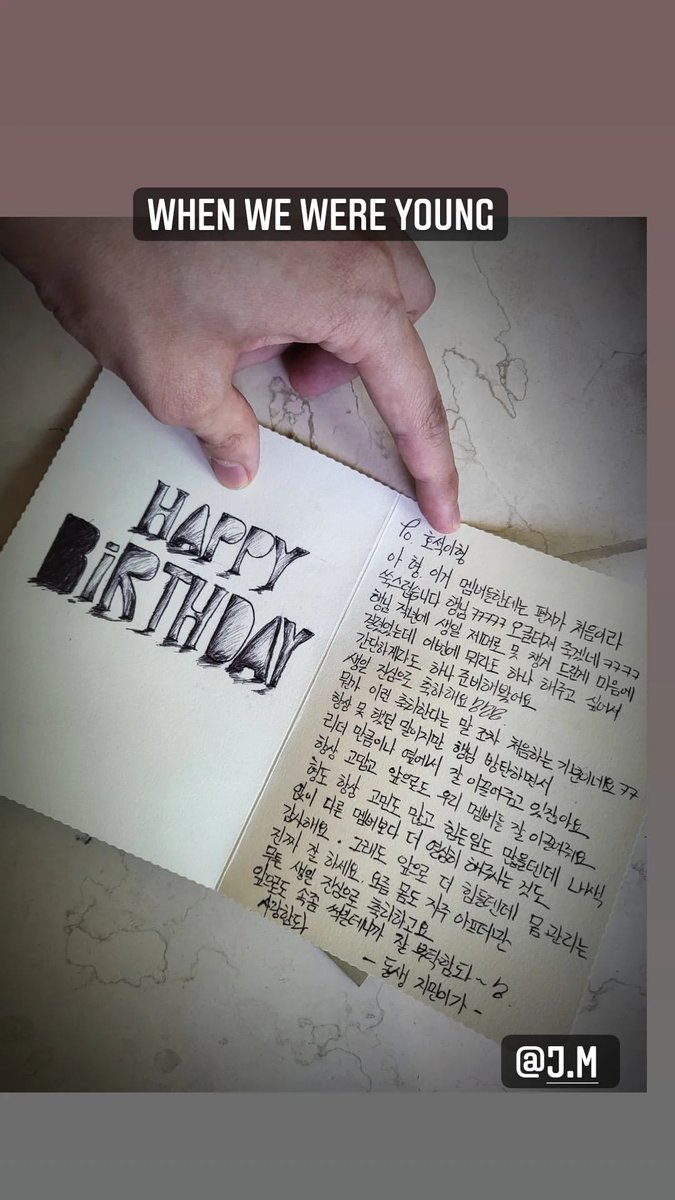 WHEN WE WERE YOUNG
HAPPY
BiRTHDAY
To. 호석이형
아 형 이거 멤버들한테는 편지가 처음이라
쑥스럽습니다 형님 ㅋㅋㅋㅋㅋ 오글터져 죽겠네 ㅋㅋㅋㅋ
형님 작년에 생일 제대로 못 챙겨 드린게 마음에
걸렸었는데 이번에 뭐라도 하나 해주고 싶어서
간단하게라도 하나 준비해봤어요
생일 진심으로 축하해요
뭔가 이런 축하한다는 말 조차 처음하는 기분이네요 ㅋㅋ
항상 못 했던 말이지만 형님 방탄하면서
리더 만큼이나 옆에서 잘 이끌어주고 있잖아요
항상 고맙고 앞으로도 우리 멤버들 잘 이끌어줘요
형도 항상 고민도 많고 힘든일도 많을텐데 내색
없이 다른 멤버보다 더 열심히 해주시는 것도
감사해요. 그래도 앞으로 더 힘들텐데 몸 관리는
진짜 잘 하세요 요즘 몸도 자주 아프더만
무튼 생일 진심으로 축하하고요
앞으로도 속좀 썩일테니까 잘 부탁함돠~
사랑함돠
- 동생 지민이가 -
@J.M